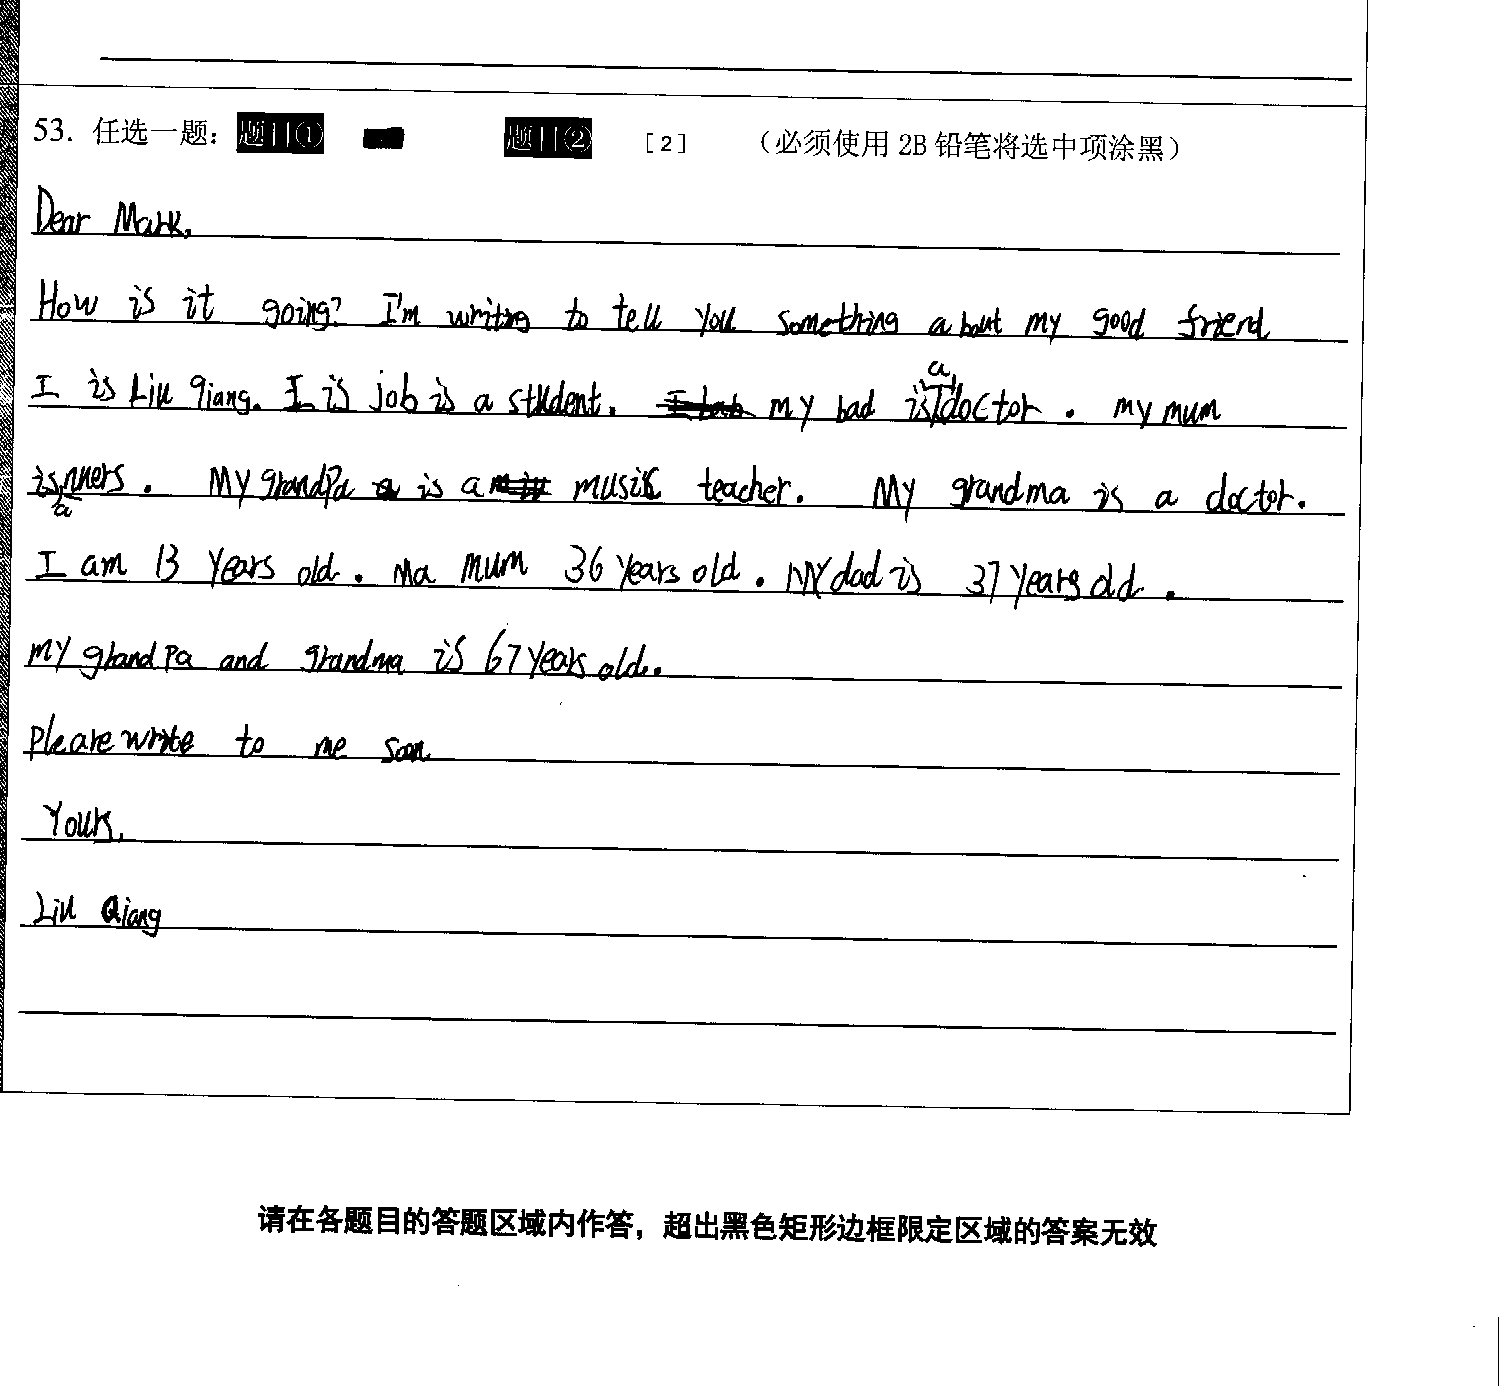 53. 任选一题：题目① 题目② [2] （必须使用 2B 铅笔将选中项涂黑）
Dear Mark,
How is it going? I'm writing to tell you something about my good friend
I is Liu qiang. I is job is a student. my bad is a doctor. my mum
is a nners. My grandpa is a music teacher. My grandma is a doctor.
I am 13 years old. Ma mum 36 years old. My dad is 37 years old.
my grandpa and grandma is 67 years old.
Pleare write to me soon
Yours,
Liu Qiang
请在各题目的答题区域内作答，超出黑色矩形边框限定区域的答案无效